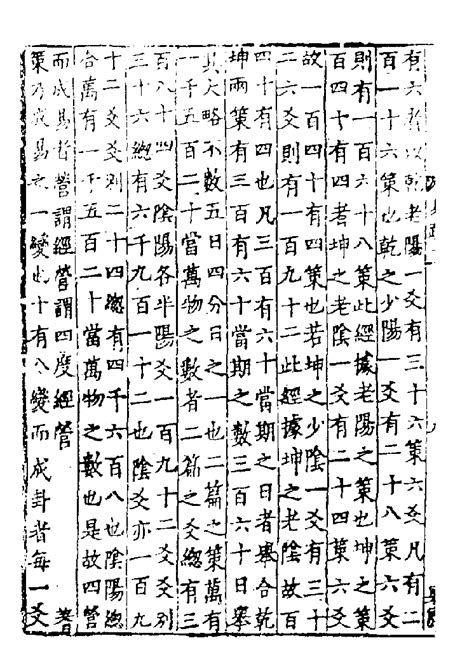 有六者以乾老陽一爻有三十六策六爻凡有二
百一十六策也乾之少陽一爻有二十八策六爻
則有一百六十八策此經據老陽之策也坤之策
百四十有四者坤之老陰一爻有二十四策六爻
故一百四十有四策也若坤之少陰一爻有三十
二六爻則有一百九十二此經據坤之老陰故百
四十有四也凡三百有六十當期之日者舉合乾
坤兩策有三百有六十當期之數三百六十日舉
其大略不數五日四分日之一也二篇之策萬有
一千五百二十當萬物之數者二篇之爻緫有三
百八十四爻陰陽各半陽爻一百九十二爻爻別
三十六緫有六千九百一十二也陰爻亦一百九
十二爻爻別二十四緫有四千六百八也陰陽緫
合萬有一千五百二十當萬物之數也是故四營
而成易者營謂經營謂四度經營蓍
策乃成易之一變也十有八變而成卦者每一爻